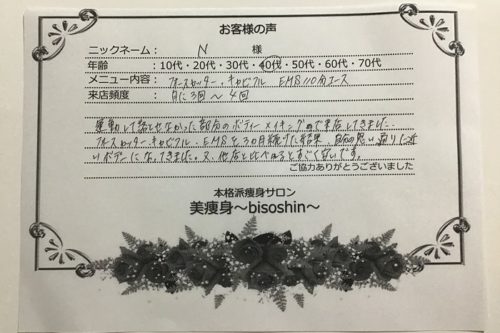 お客様の声
ニックネーム： N 様
年齢 ：10代・20代・30代・40代・50代・60代・70代
メニュー内容： キャビフル EMS 110分コース
来店頻度 ： 月に3回～4回
運動して落とせなかった部分のボディーメイキング で来店してきました。
EMSを3ヶ月続けた結果、自分の思い通りに近
いボディーになってきました。又、他店と比べるとすごく安いです。
ご協力ありがとうございました
本格派痩身サロン
美痩身～bisoshin～